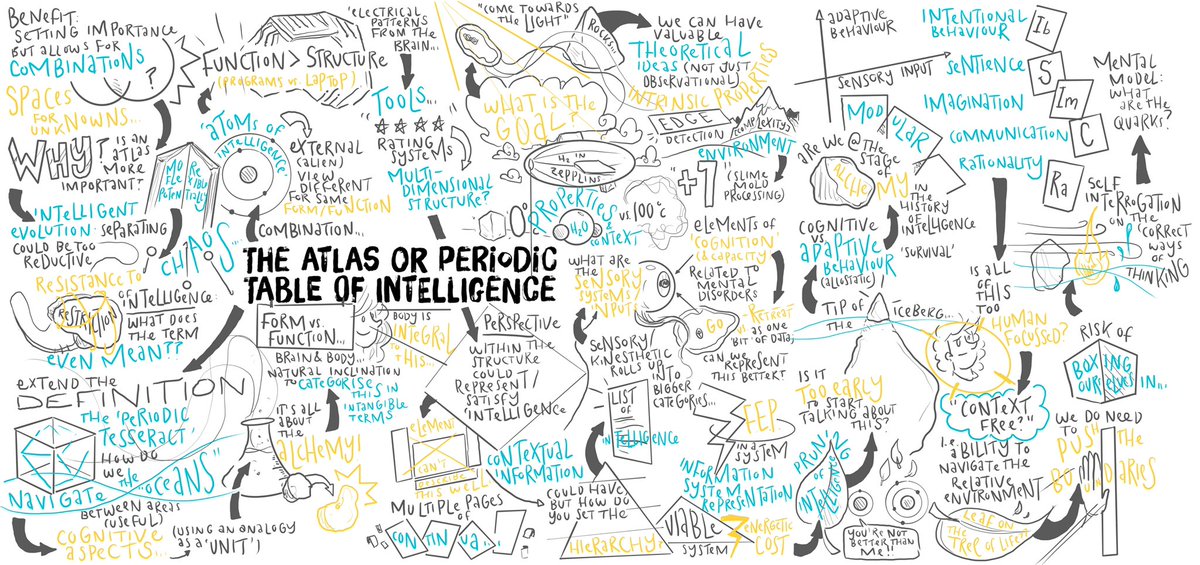 BENEFIT:
SETTING IMPORTANCE
BUT ALLOWS FOR
COMBINATIONS
?
SPACES
FOR
UNKNOWNS...
WHY?
IS AN
ATLAS
MORE
IMPORTANT?
INTELLIGENT
EVOLUTION. SEPARATING
COULD BE TOO
REDUCTIVE
RESISTANCE TO
RESTRICTION
OF
INTELLIGENCE:
WHAT DOES
THE TERM
EVEN MEAN??
EXTEND THE
DEFINITION
THE 'PERIODIC
TESSERACT'
HOW DO
WE
NAVIGATE THE "OCEANS"
BETWEEN AREAS
(USEFUL)
COGNITIVE
ASPECTS...
(USING AN ANALOGY
AS A 'UNIT')
FUNCTION > STRUCTURE
(PROGRAMS VS. LAPTOP)
ATOMS OF
INTELLIGENCE
MORE
FLEXIBLE
POTENTIALLY
CHAOS...
EXTERNAL
(ALIEN)
VIEW
DIFFERENT
FOR SAME
FORM/FUNCTION
COMBINATION...
THE ATLAS OR PERIODIC
TABLE OF INTELLIGENCE
FORM VS.
FUNCTION...
BRAIN & BODY...
NATURAL INCLINATION
TO CATEGORISE
THIS IN
INTANGIBLE
TERMS
IT'S ALL
ABOUT
THE
ALCHEMY!
BODY IS
INTEGRAL
TO THIS...
"ELECTRICAL
PATTERNS
FROM THE
BRAIN...
TOOLS...
RATING
SYSTEMS
MULTI-
DIMENSIONAL
STRUCTURE?
"COME TOWARDS
THE LIGHT"
ROCKS!!!
WHAT IS THE
GOAL?
H2 IN
ZEPPLINS
0°
PROPERTIES
&
CONTEXT
H2O
VS. 100°C
PERSPECTIVE
WITHIN THE
STRUCTURE
COULD
REPRESENT/
SATISFY
INTELLIGENCE
ELEMENT
CAN'T
DESCRIBE
THIS WELL
MULTIPLE PAGES
OF
CONTINUA...
CONTEXTUAL
INFORMATION
WE CAN HAVE
VALUABLE
THEORETICAL
IDEAS (NOT JUST
OBSERVATIONAL)
INTRINSIC PROPERTIES
EDGE
DETECTION
COMPLEXITY?
ENVIRONMENT
"+1"
(SLIME
MOLD
PROCESSING)
ELEMENTS OF
'COGNITION'
(& CAPACITY)
RELATED TO
MENTAL
DISORDERS
WHAT ARE
THE SENSORY
SYSTEMS
INPUT
SENSORY
KINESTHETIC
ROLLS UP
INTO
BIGGER
CATEGORIES...
GO
- RETREAT
AS ONE
'BIT' OF DATA,
CAN WE
REPRESENT
THIS BETTER?
LIST
OF
INTELLIGENCE
COULD HAVE,
BUT HOW DO
YOU SET THE
HIERARCHY?
FEP
IN A
SYSTEM
INFORMATION
SYSTEM
REPRESENTATION
VIABLE
SYSTEM
ENERGETIC
COST
ADAPTIVE
BEHAVIOUR
SENSORY INPUT
MODULAR
ARE WE @ THE
STAGE
OF
ALCHEMY
IN THE
HISTORY OF
INTELLIGENCE
COGNITIVE
VS.
ADAPTIVE
BEHAVIOUR
(ALLOSTATIC)
'SURVIVAL'
TIP OF
THE
ICEBERG...
IS IT
TOO EARLY
TO START
TALKING ABOUT
THIS?
PRUNING
OF
INTELLIGENCE
YOU'RE NOT
BETTER THAN
ME!!
INTENTIONAL
BEHAVIOUR
Ib
SENTIENCE
S
IMAGINATION
Im
COMMUNICATION
C
RATIONALITY
Ra
IS ALL
OF
THIS
TOO
HUMAN
FOCUSSED?
"CONTEXT
FREE?"
i.e.
ABILITY TO
NAVIGATE THE
RELATIVE
ENVIRONMENT
LEAF ON
THE
TREE OF LIFE!!
MENTAL
MODEL:
WHAT
ARE THE
QUARKS?
SELF
INTERROGATION
ON THE
'CORRECT'
WAYS
OF
THINKING
RISK OF
BOXING
OURSELVES
IN...
WE DO NEED
TO PUSH THE
BOUNDARIES